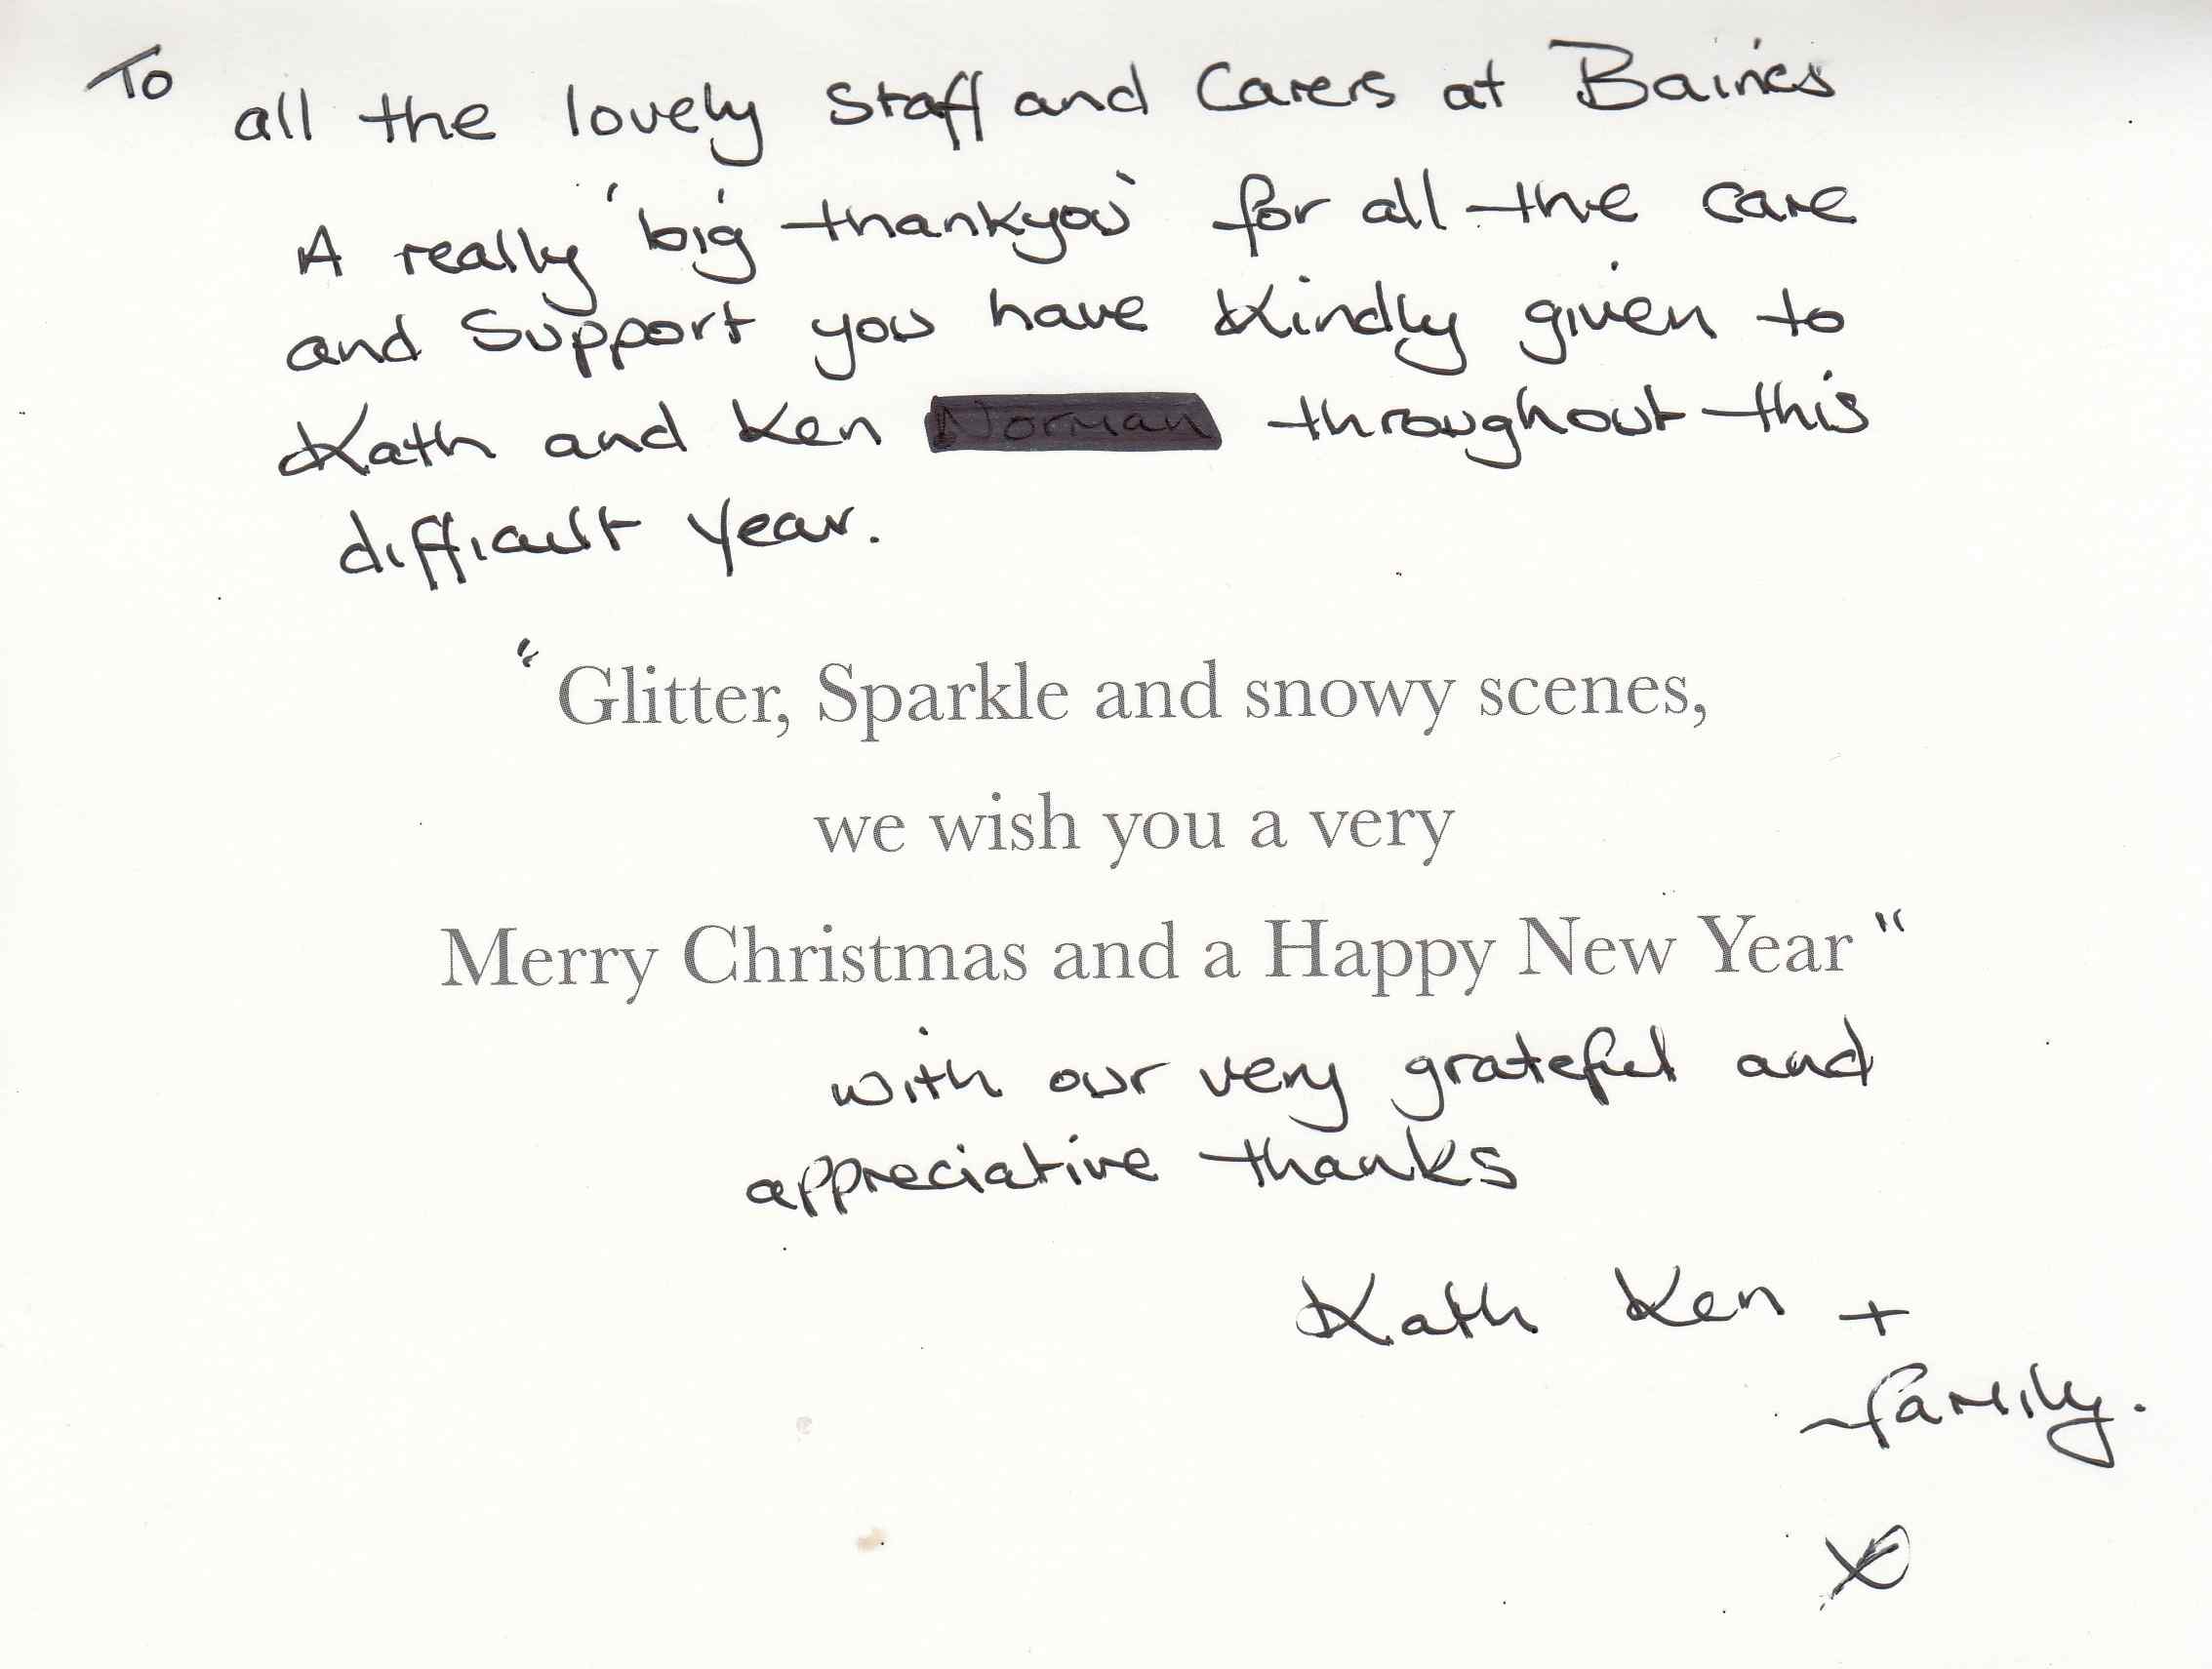 To all the lovely Staff and Carers at Baines
A really 'big thankyou' for all the care
and Support you have kindly given to
Kath and Ken throughout this
difficult year.
"Glitter, Sparkle and snowy scenes,
we wish you a very
Merry Christmas and a Happy New Year"
with our very grateful and
appreciative thanks
Kath Ken +
family.
x